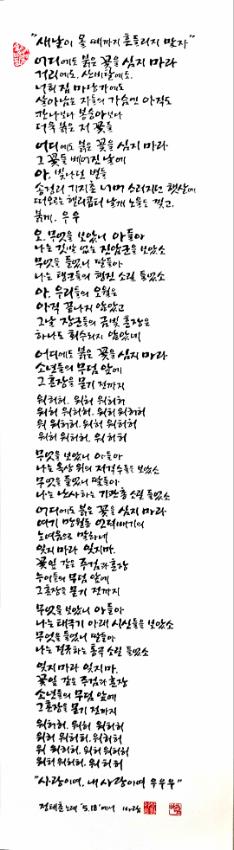 "새날이 올 때까지 흔들리지 말자"
어디에도 붉은 꽃을 심지 마라
거리에도, 산비탈에도,
너희 집 마당가에도
살아남은 자들의 가슴엔 아직도
칸나보다 봉숭아보다
더욱 붉은 저 꽃들
어디에도 붉은 꽃을 심지 마라
그 꽃들 베어진 날에
아, 빛나던 별들
송정리 기지촌 너머 스러지던 햇살에
떠오르는 헬리콥터 날개 노을도 찢고,
붉게, 우우
오, 무엇을 보았니 아들아
나는 깃발 없는 진압군을 보았소
무엇을 들었니 딸들아
나는 탱크들의 행진 소릴 들었소
아, 우리들의 오월은
아직 끝나지 않았고
그날 장군들의 금빛 훈장은
하나도 회수되지 않았네
어디에도 붉은 꽃을 심지 마라
소년들의 무덤 앞에
그 훈장을 묻기 전까지
워허허, 워허 워허허
워허 워허허, 워허 워허허
워 워허허, 워허 워허허
워허 워허허, 워허 허
무엇을 보았니 아들아
나는 옥상 위의 저격수들을 보았소
무엇을 들었니 딸들아
나는 난사하는 기관총 소릴 들었소
어디에도 붉은 꽃을 심지 마라
여기 망월동 언덕배기의
노여움으로 말하네
잊지 마라 잊지 마,
꽃잎 같은 주검과 훈장
누이들의 무덤 앞에
그 훈장을 묻기 전까지
무엇을 보았니 아들아
나는 태극기 아래 시신들을 보았소
무엇을 들었니 딸들아
나는 절규하는 통곡 소릴 들었소
잊지 마라 잊지 마,
꽃잎 같은 주검과 훈장
소년들의 무덤 앞에
그 훈장을 묻기 전까지
워허허, 워허 워허허
워허 워허허, 워허허
워 워허허, 워허 워허허
워허 워허허, 워허 허
"사랑이여, 내 사랑이여 우우우"
정태춘 노래 '5.18'에서